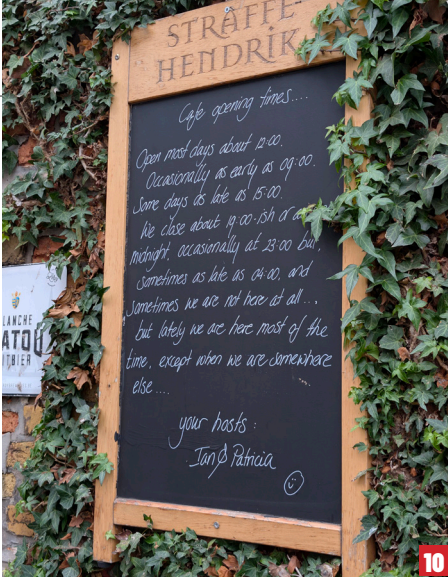 STRAFFE
HENDRIK
Cafe opening times....
Open most days about 12:00.
Occasionally as early as 09:00.
Some days as late as 15:00.
We close about 19:00-ish or
midnight, occasionally at 23:00 but,
sometimes as late as 04:00, and
sometimes we are not here at all...,
but lately we are here most of the
time, except when we are somewhere
else....
your hosts:
Ian & Patricia
LANCHE
ATOU
ITBIER
10